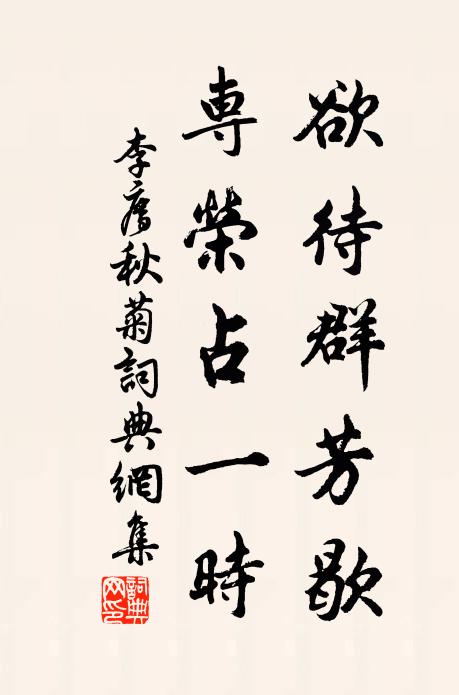 欲待群芳歇
専榮占一時
李廌秋菊詞典網集
詞典网印